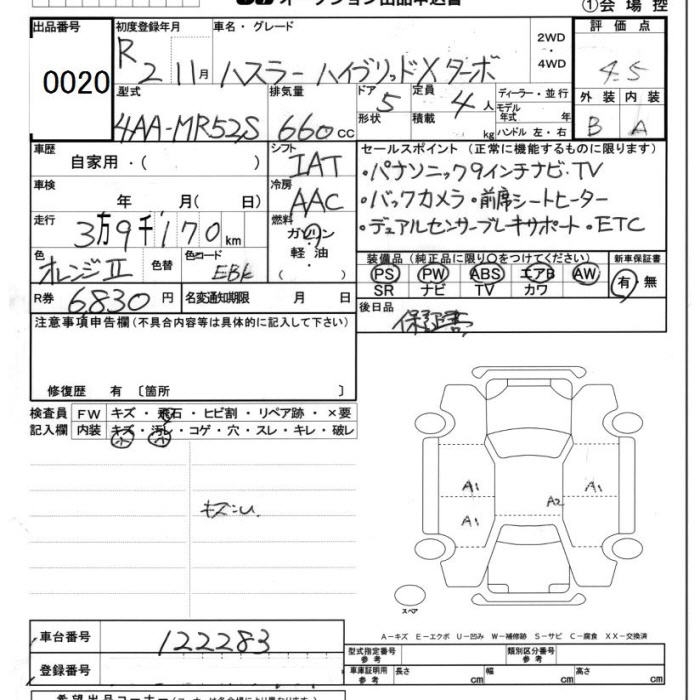 ①会 場 控
出品番号
0020
初度登録年月
R 2 11月
車名・グレード
ハスラー ハイブリッドXターボ
2WD
・
4WD
評 価 点
4.5
外 装 内 装
B A
型式
4AA-MR52S
排気量
660 cc
ドア 5
形状
定員 4 人
積載 kg
ディーラー・並 行
モデル
年式 年
ハンドル 左・右
車歴
自家用・( )
シフト
IAT
冷房
AAC
車検
年 月( 日)
走行
3万9千170 km
燃料
ガソリン
軽 油
・
色
オレンジⅡ
色替
色コード
EBK
R券 6,830 円
名変通知期限 月 日
セールスポイント(正常に機能するものに限ります)
・パナソニック9インチナビ・TV
・バックカメラ・前席シートヒーター
・デュアルセンサーブレーキサポート・ETC
装備品(純正品に限り○をつけてください)
PS PW ABS エアB AW
SR ナビ TV カワ
新車保証書
有・無
後日品
保証書
注意事項申告欄(不具合内容等は具体的に記入して下さい)
修復歴 有 〔箇所 〕
検査員
記入欄
FW キズ・飛石・ヒビ割・リペア跡・×要
内装 キズ・汚レ・コゲ・穴・スレ・キレ・破レ
小 小
A1
A1
A2
A1
スペア
A-キズ E-エクボ U-凹み W-補修跡 S-サビ C-腐食 XX-交換済
車台番号
122283
登録番号
型式指定番号
参考
類別区分番号
参考
車庫証明用
参考
長さ cm
幅 cm
高さ cm